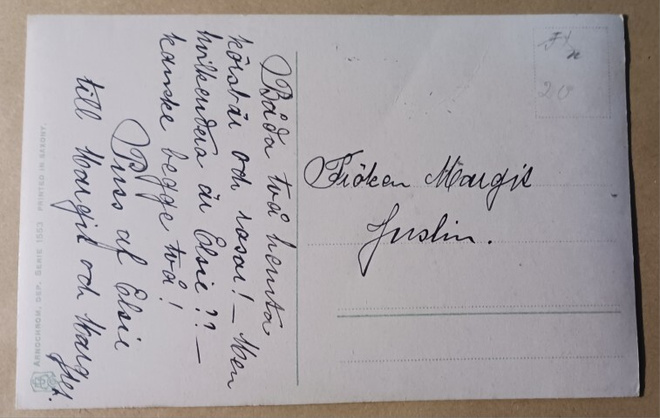 Båda två hemta
körsbär och rosor! – Men
hvilkendera är Elsie?? –
kanske begge två!
Puss af Elsie
till Margit och Marg
Fröken Margit
Juslin.
ARNOCHROM, DEP. SERIE 1553 PRINTED IN SAXONY